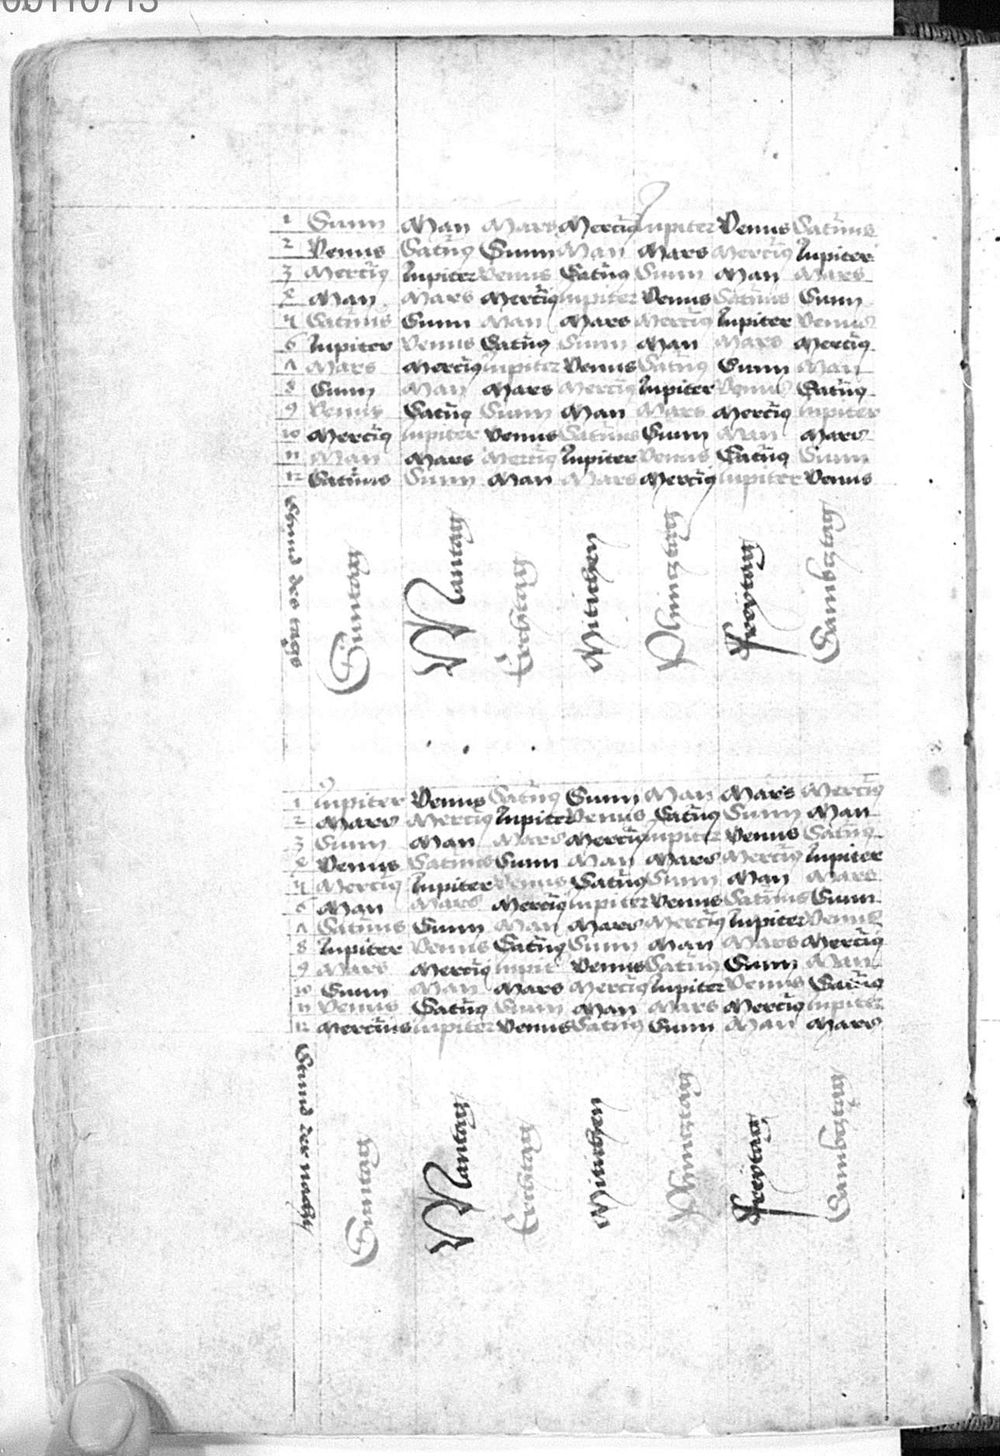 1 Sunn Man Mars Mercũ Jupiter Venus Saturnus
2 Venus Satũꝰ Sunn Man Mars Mercũ Jupiter
3 Mercũ Jupiter Venus Satũꝰ Sunn Man Mars
4 Man Mars Mercũ Jupiter Venus Satũnus Sunn
5 Satũnus Sunn Man Mars Mercũ Jupiter Venus
6 Jupiter Venus Satũꝰ Sunn Man Mars Mercũ
7 Mars Mercũ Jupiter Venus Satũꝰ Sunn Man
8 Sunn Man Mars Mercũ Jupiter Venus Satũꝰ
9 Venus Satũꝰ Sunn Man Mars Mercũ Jupiter
10 Mercũ Jupiter Venus Satũnus Sunn Man Mars
11 Man Mars Mercũ Jupiter Venus Satũꝰ Sunn
12 Satũnus Sunn Man Mars Mercũ Jupiter Venus
Stund des tags
Sunntag
Mantag
Erchtag
Mitichen
Phincztag
Freytag
Sambcztag
1 Jupiter Venus Satũꝰ Sunn Man Mars Mercũ
2 Mars Mercũ Jupiter Venus Satũꝰ Sunn Man
3 Sunn Man Mars Mercũ Jupiter Venus Satũꝰ
4 Venus Satũnus Sunn Man Mars Mercũ Jupiter
5 Mercũ Jupiter Venus Satũꝰ Sunn Man Mars
6 Man Mars Mercũ Jupiter Venus Satũnus Sunn
7 Satũnus Sunn Man Mars Mercũ Jupiter Venus
8 Jupiter Venus Satũꝰ Sunn Man Mars Mercũ
9 Mars Mercũ Jupit Venus Satũꝰ Sunn Man
10 Sunn Man Mars Mercũ Jupiter Venus Satũꝰ
11 Venus Satũꝰ Sunn Man Mars Mercũ Jupiter
12 Mercũius Jupiter Venus Satũꝰ Sunn Man Mars
Stund der nacht
Sunntag
Mantag
Erchtag
Mitichen
Phincztag
Freytag
Sambcztag